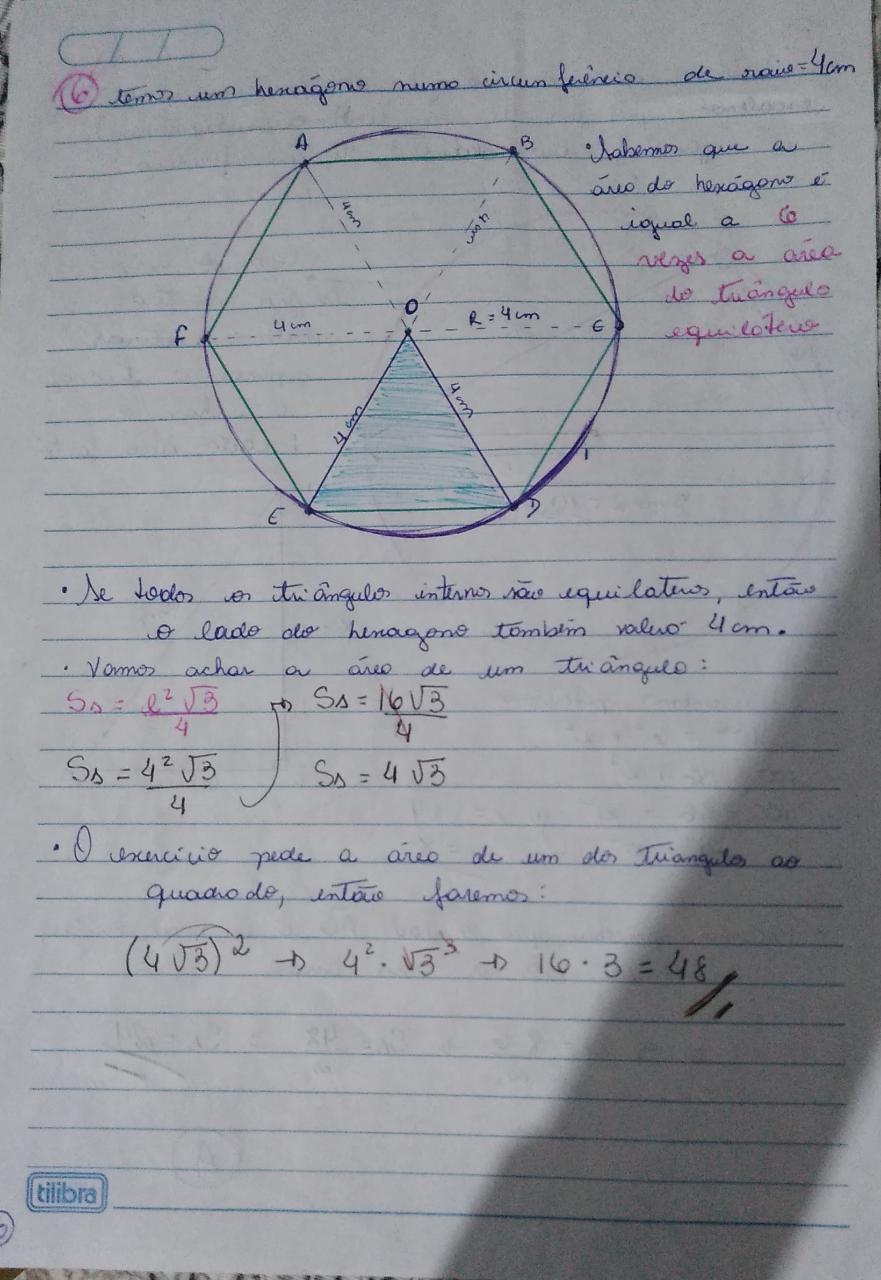 6 temos um hexágono numa circunferência de raio = 4cm
A
B
• Sabemos que a
área do hexágono é
igual a 6
vezes a área
do triângulo
equilátero
4cm
4cm
O
F
4cm
R = 4cm
C
4cm
4cm
E
D
• Se todos os triângulos internos são equilateros, então
o lado do hexagono também valerá 4cm.
• Vamos achar a área de um triângulo:
S△ = l²√3/4 → S△ = 16√3/4
S△ = 4²√3/4 S△ = 4√3
• O exercício pede a área de um dos triangulos ao
quadrado, então faremos:
(4√3)² → 4² · √3³ → 16 · 3 = 48
tilibra